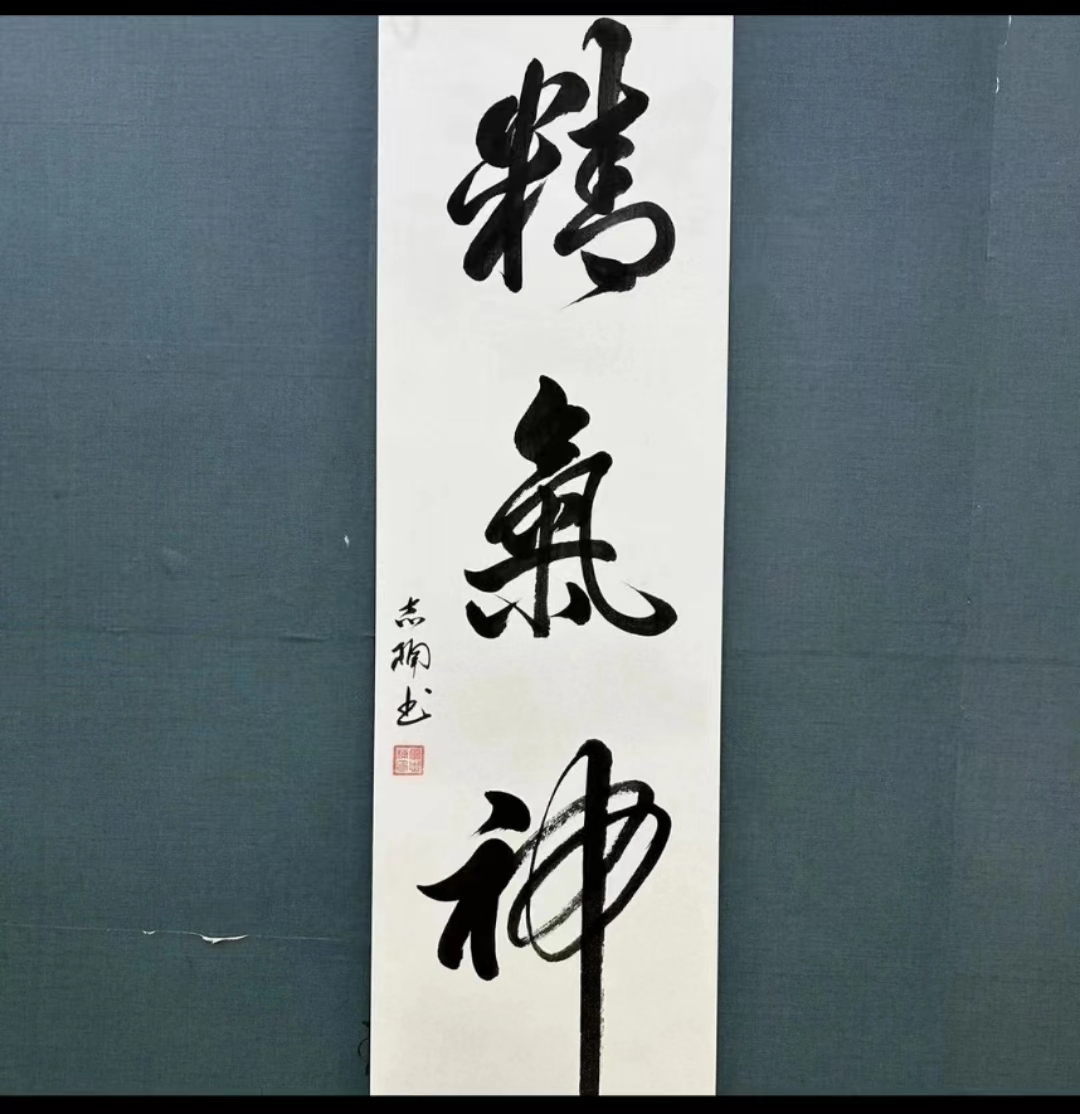 精氣神
志楠书